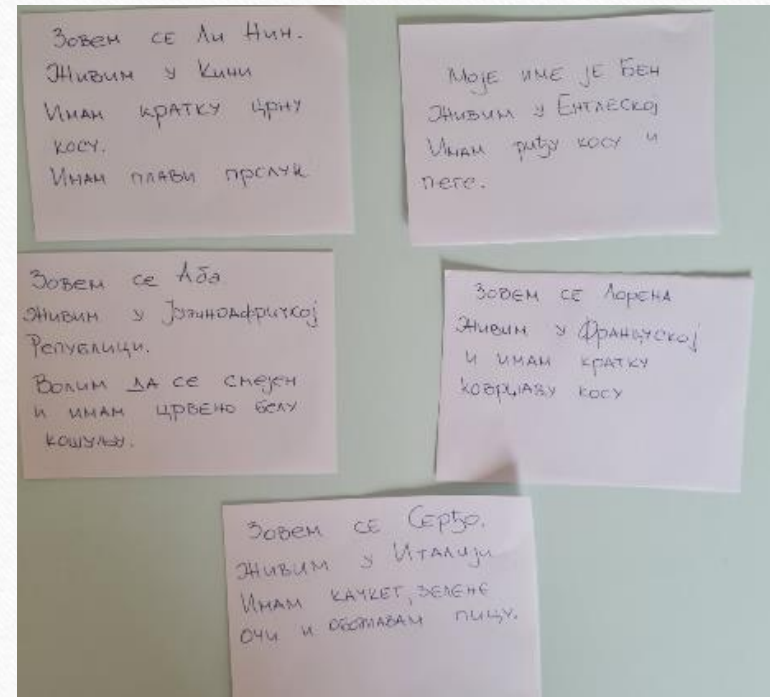 Зовем се Ли Нин.
Живим у Кини
Имам кратку црну
косу.
Имам плави прслук
Моје име је Бен
Живим у Енглеској
Имам риђу косу и
пеге.
Зовем се Аба
Живим у Јужноафричкој
Републици.
Волим да се смејем
и имам црвено белу
кошуљу.
Зовем се Лорена
Живим у Француској
и имам кратку
коврџаву косу
Зовем се Серђо.
Живим у Италији
Имам качкет, зелене
очи и обожавам пицу.